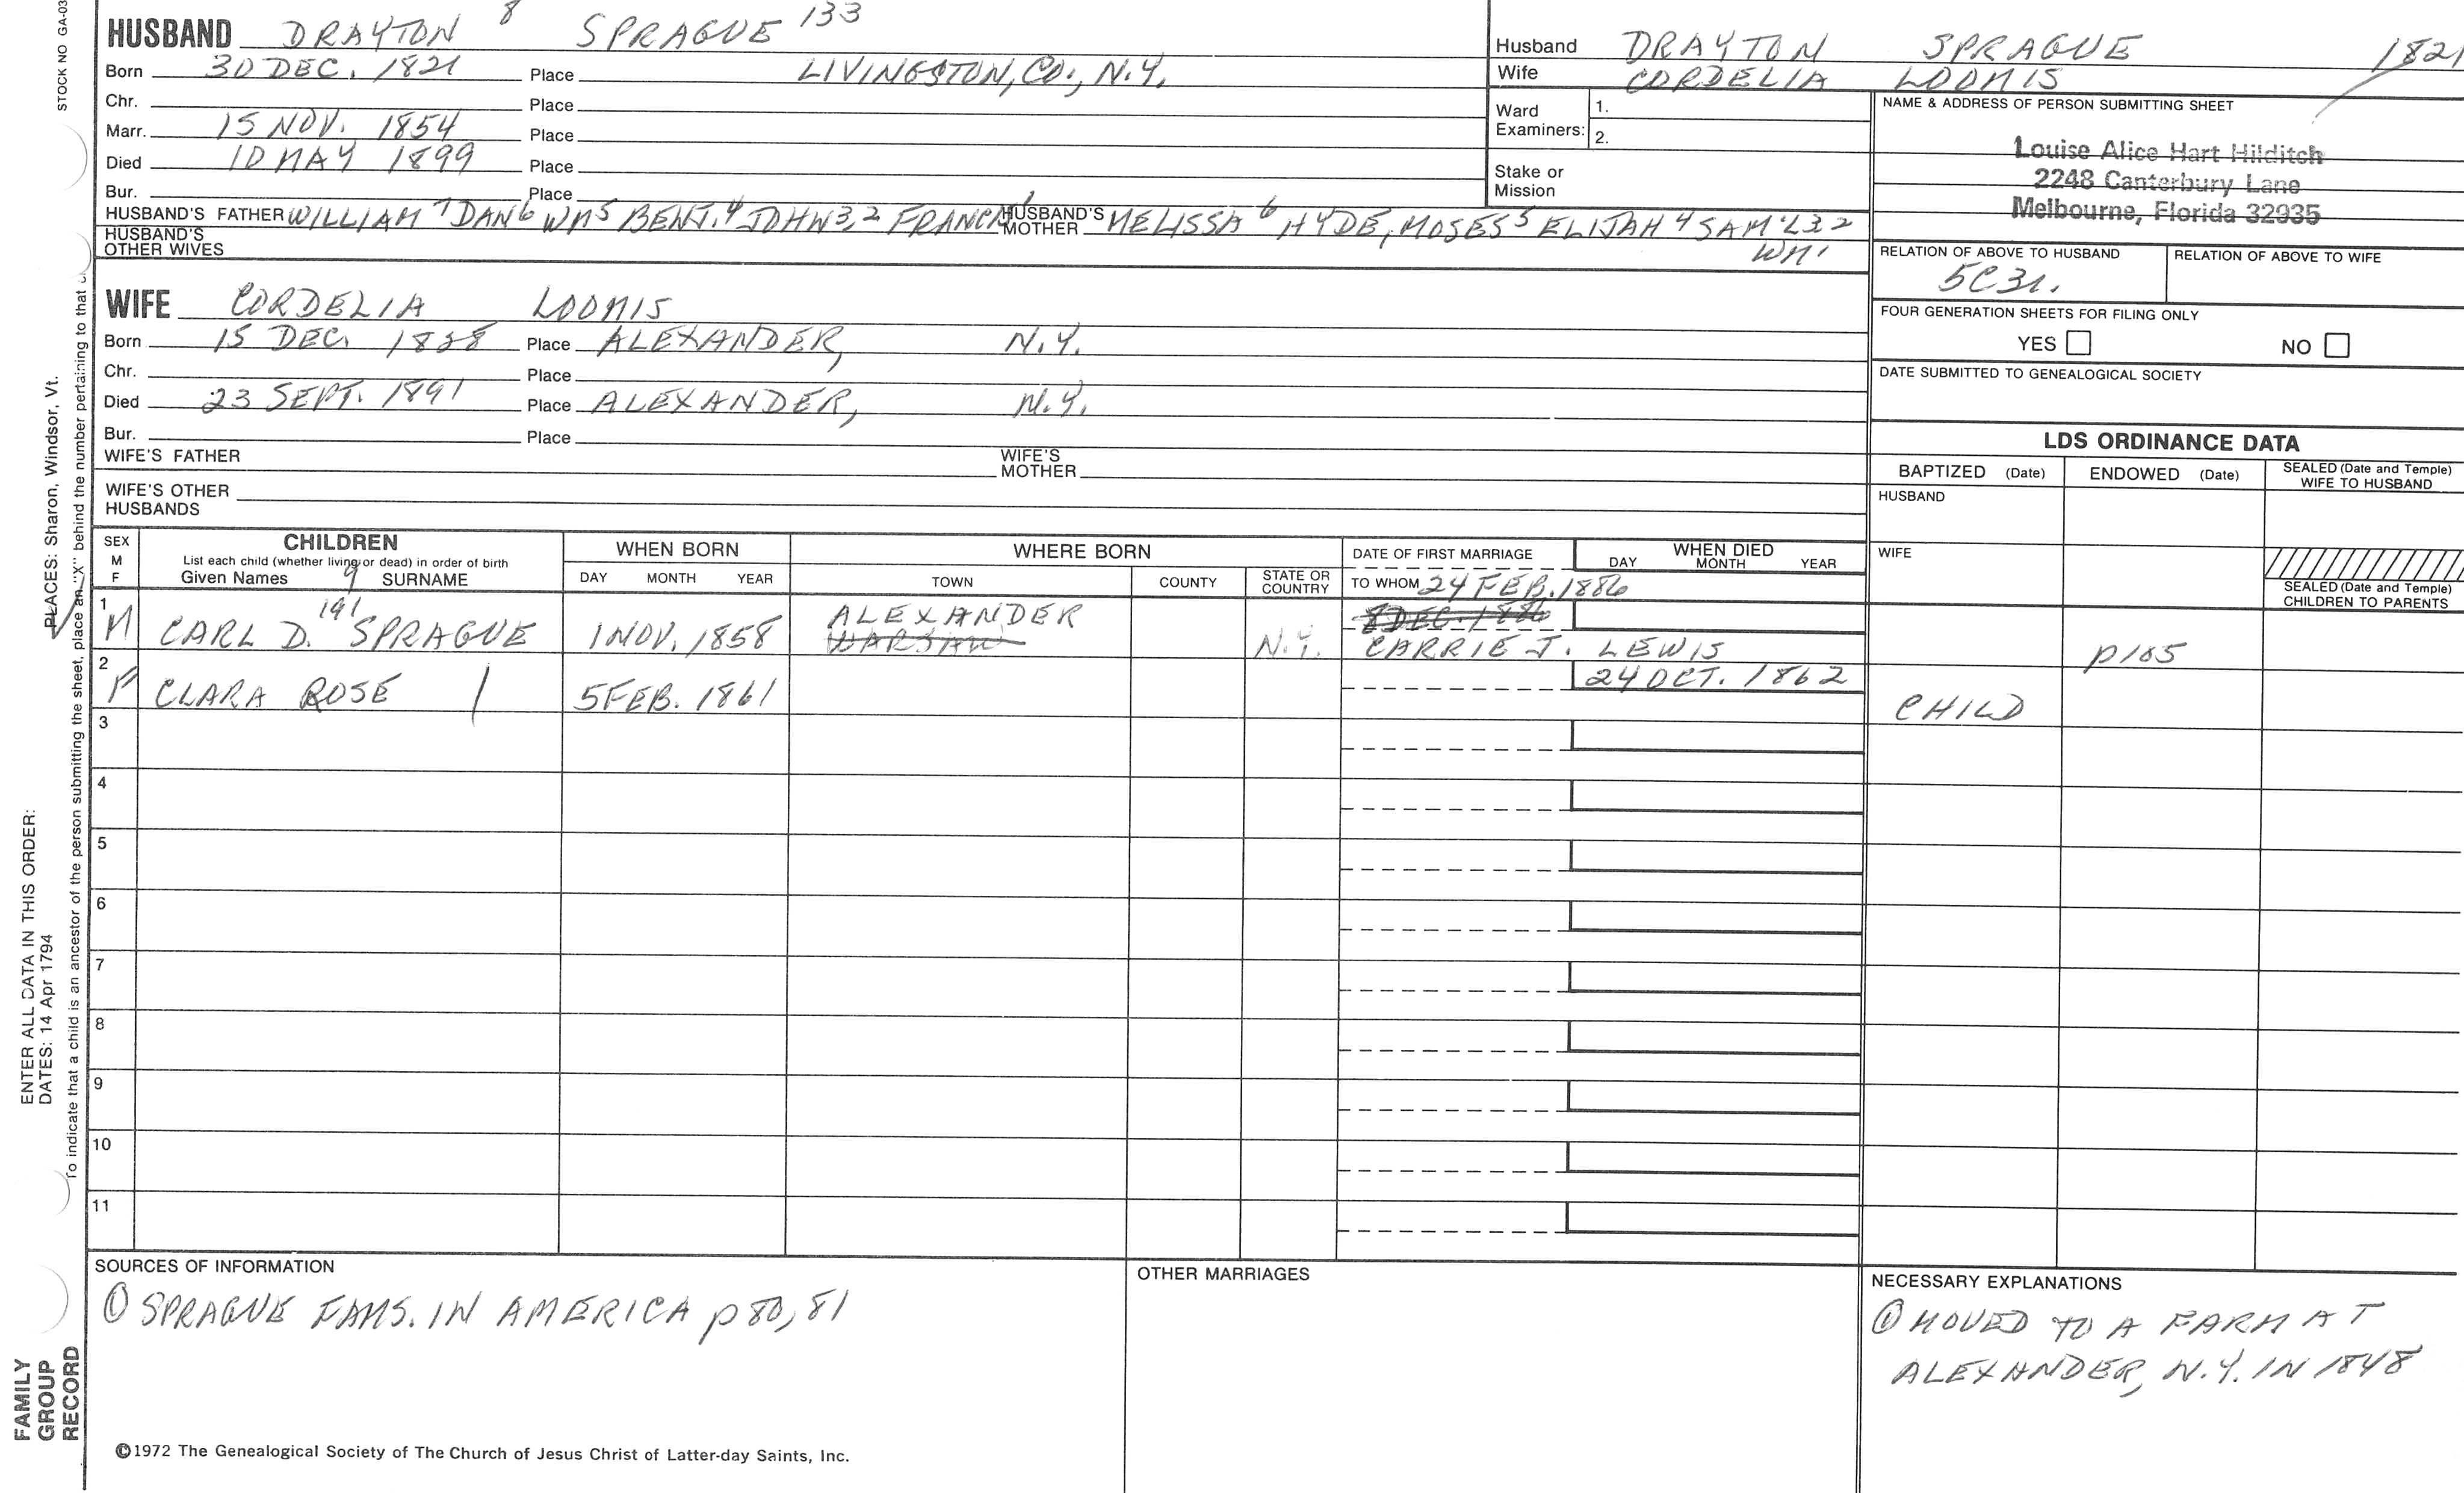 STOCK NO GA-03
HUSBAND DRAYTON 8 SPRAGUE 133
Born 30 DEC. 1821 Place LIVINGSTON, CO., N.Y.
Chr. Place
Marr. 15 NOV. 1854 Place
Died 10 MAY 1899 Place
Bur. Place
HUSBAND'S FATHER WILLIAM 7 DAN 6 WM 5 BENJ. 4 JOHN 3,2 FRANCIS 1 HUSBAND'S MOTHER MELISSA 6 HYDE, MOSES 5 ELIJAH 4 SAM'L 3 2
WM 1
HUSBAND'S OTHER WIVES
WIFE CORDELIA LOOMIS
Born 15 DEC. Place ALEXANDER, N.Y.
Chr. Place
Died 23 SEPT. 1891 Place ALEXANDER, N.Y.
Bur. Place
WIFE'S FATHER WIFE'S MOTHER
WIFE'S OTHER HUSBANDS
Husband DRAYTON SPRAGUE 1821
Wife CORDELIA LOOMIS
Ward Examiners: 1.
2.
Stake or Mission
NAME & ADDRESS OF PERSON SUBMITTING SHEET
Louise Alice Hart Hilditch
2248 Canterbury Lane
Melbourne, Florida 32935
RELATION OF ABOVE TO HUSBAND RELATION OF ABOVE TO WIFE
FOUR GENERATION SHEETS FOR FILING ONLY
YES NO
DATE SUBMITTED TO GENEALOGICAL SOCIETY
LDS ORDINANCE DATA
BAPTIZED (Date) ENDOWED (Date) SEALED (Date and Temple) WIFE TO HUSBAND
HUSBAND
WIFE
SEALED (Date and Temple) CHILDREN TO PARENTS
SEX M F
CHILDREN
List each child (whether living or dead) in order of birth
Given Names 9 SURNAME
WHEN BORN
DAY MONTH YEAR
WHERE BORN
TOWN COUNTY STATE OR COUNTRY
DATE OF FIRST MARRIAGE
TO WHOM
WHEN DIED
DAY MONTH YEAR
24 FEB. 1886
1 M CARL D. 191 SPRAGUE 1 NOV. 1858 ALEXANDER WARSAW N.Y. 8 DEC. 1886 CARRIE J. LEWIS p185
2 F CLARA ROSE / 5 FEB. 1861 24 OCT. 1862 CHILD
3
4
5
6
7
8
9
10
11
SOURCES OF INFORMATION
① SPRAGUE FAMS. IN AMERICA p 80, 81
OTHER MARRIAGES
NECESSARY EXPLANATIONS
① MOVED TO A FARM AT
ALEXANDER, N.Y. IN 1848
©1972 The Genealogical Society of The Church of Jesus Christ of Latter-day Saints, Inc.
FAMILY
GROUP
RECORD
ENTER ALL DATA IN THIS ORDER:
DATES: 14 Apr 1794
PLACES: Sharon, Windsor, Vt.
To indicate that a child is an ancestor of the person submitting the sheet, place an "X" behind the number pertaining to that